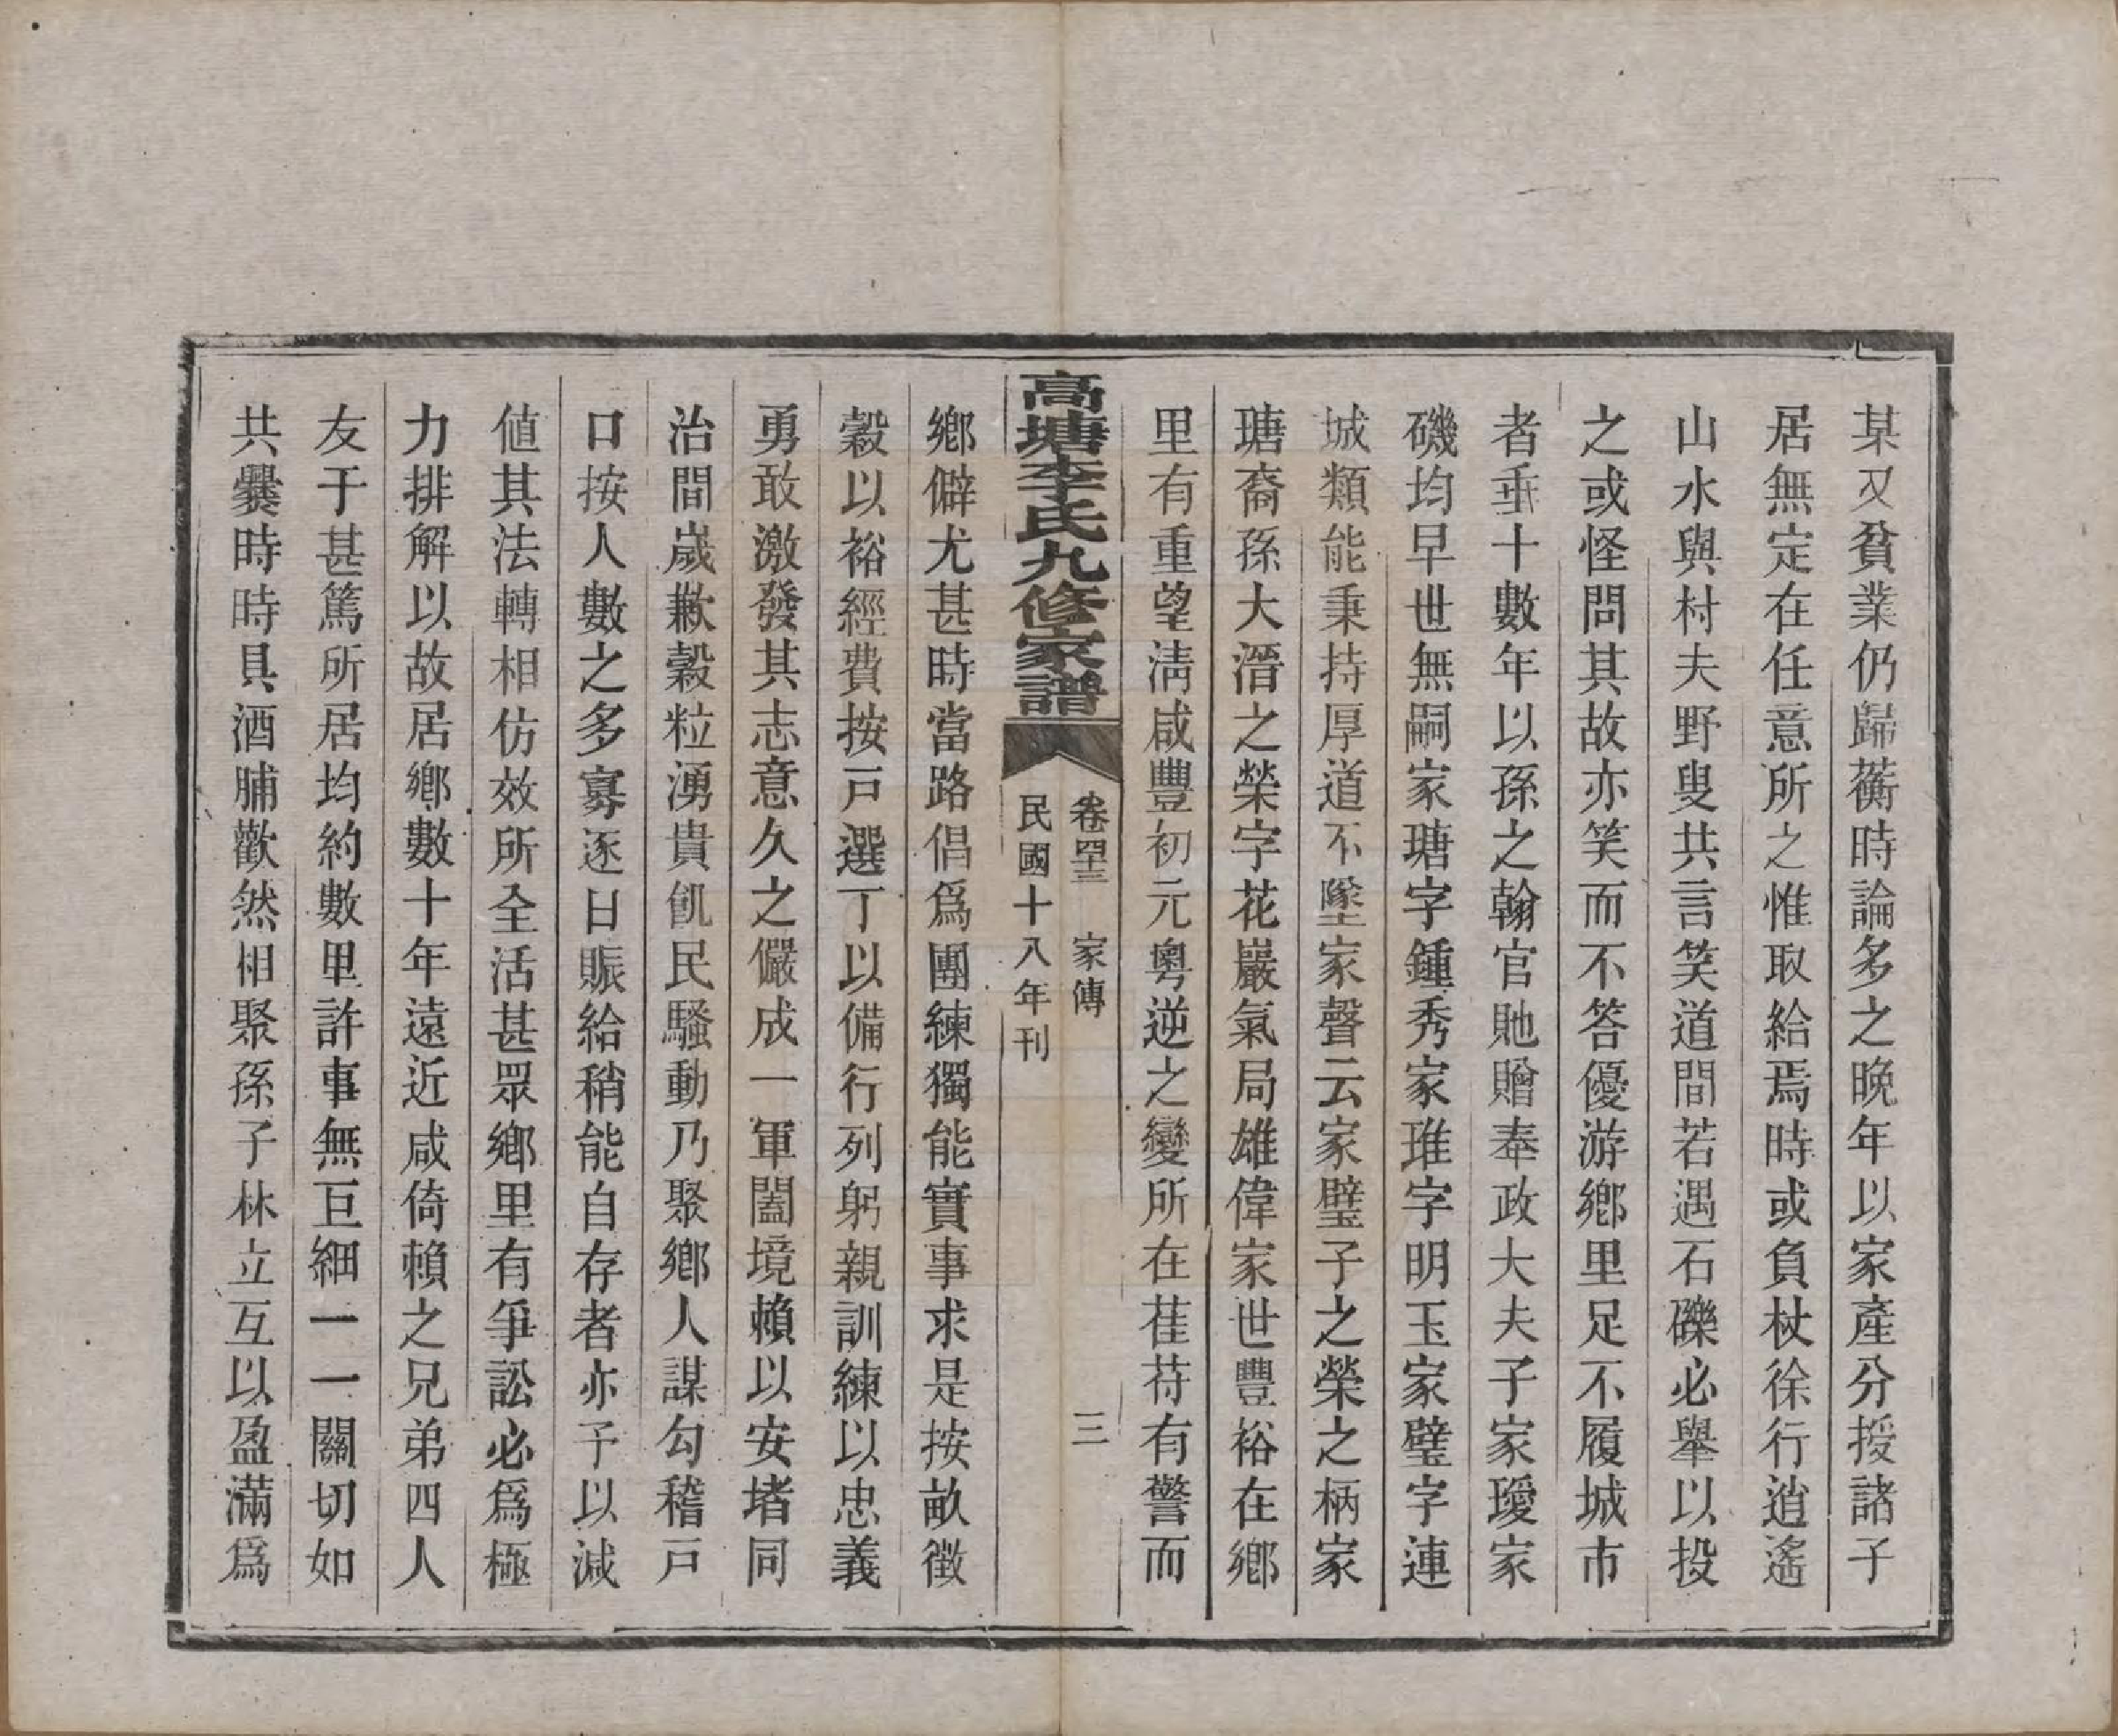 某又貧業仍歸蘅時論多之晚年以家產分授諸子
居無定在任意所之惟取給焉時或負杖徐行逍遙
山水與村夫野叟共言笑道間若遇石礫必舉以投
之或怪問其故亦笑而不答優游鄉里足不履城市
者垂十數年以孫之翰官貤贈奉政大夫子家璦家
磯均早世無嗣家瑭字鍾秀家琟字明玉家璧字連
城類能秉持厚道不墜家聲云家璧子之榮之柄家
瑭裔孫大濳之榮字花巖氣局雄偉家世豐裕在鄉
里有重望淸咸豐初元粵逆之變所在萑苻有警而
高塘李氏九修家譜
卷四十三　家傳
三
民國十八年刊
鄉僻尤甚時當路倡爲團練獨能實事求是按畝徵
穀以裕經費按戶選丁以備行列躬親訓練以忠義
勇敢激發其志意久之儼成一軍闔境賴以安堵同
治間歲歉穀粒湧貴飢民騷動乃聚鄉人謀勾稽戶
口按人數之多寡逐日賑給稍能自存者亦予以減
値其法轉相仿效所全活甚眾鄉里有爭訟必爲極
力排解以故居鄉數十年遠近咸倚賴之兄弟四人
友于甚篤所居均約數里許事無巨細一一關切如
共爨時時具酒脯歡然相聚孫子林立互以盈滿爲